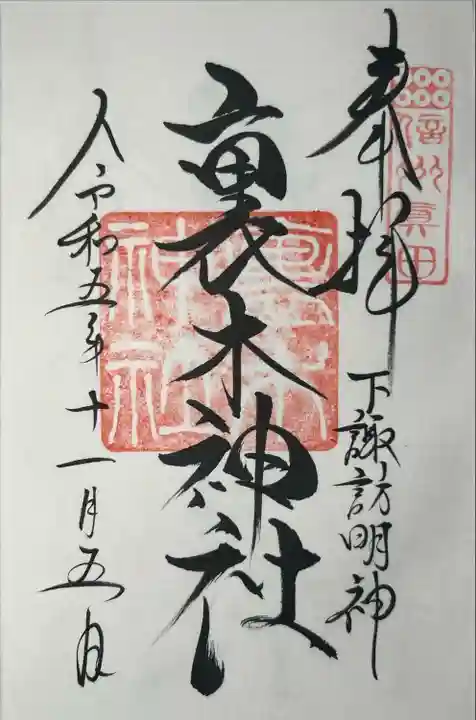 信州真田
奉拝
下諏訪明神
裏木神社
令和五年十一月五日